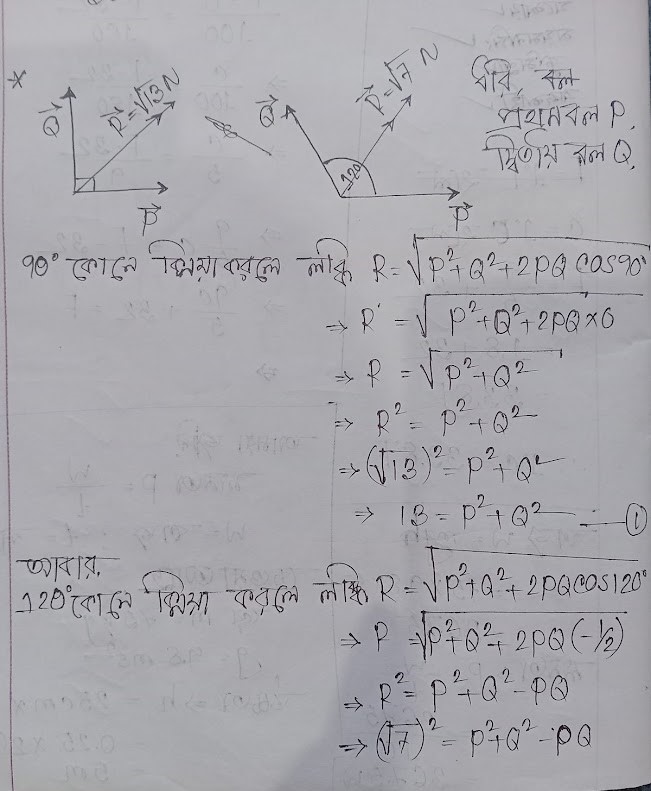 *
Q⃗ R⃗=√13 N P⃗
Q⃗ R⃗=√7 N 120 P⃗
ধরি, বল
প্রথমবল P.
দ্বিতীয় বল Q.
90° কোনে ক্রিয়া করলে লব্ধি R = √P²+Q²+2PQ COS90°
⇒ R = √P²+Q²+2PQ×0
⇒ R = √P²+Q²
⇒ R² = P²+Q²
⇒ (√13)² = P²+Q²
⇒ 13 = P²+Q² — ①
আবার,
120° কোনে ক্রিয়া করলে লব্ধি R = √P²+Q²+2PQCOS120°
⇒ R = √P²+Q²+2PQ(-1/2)
⇒ R² = P²+Q²-PQ
⇒ (√7)² = P²+Q²-PQ